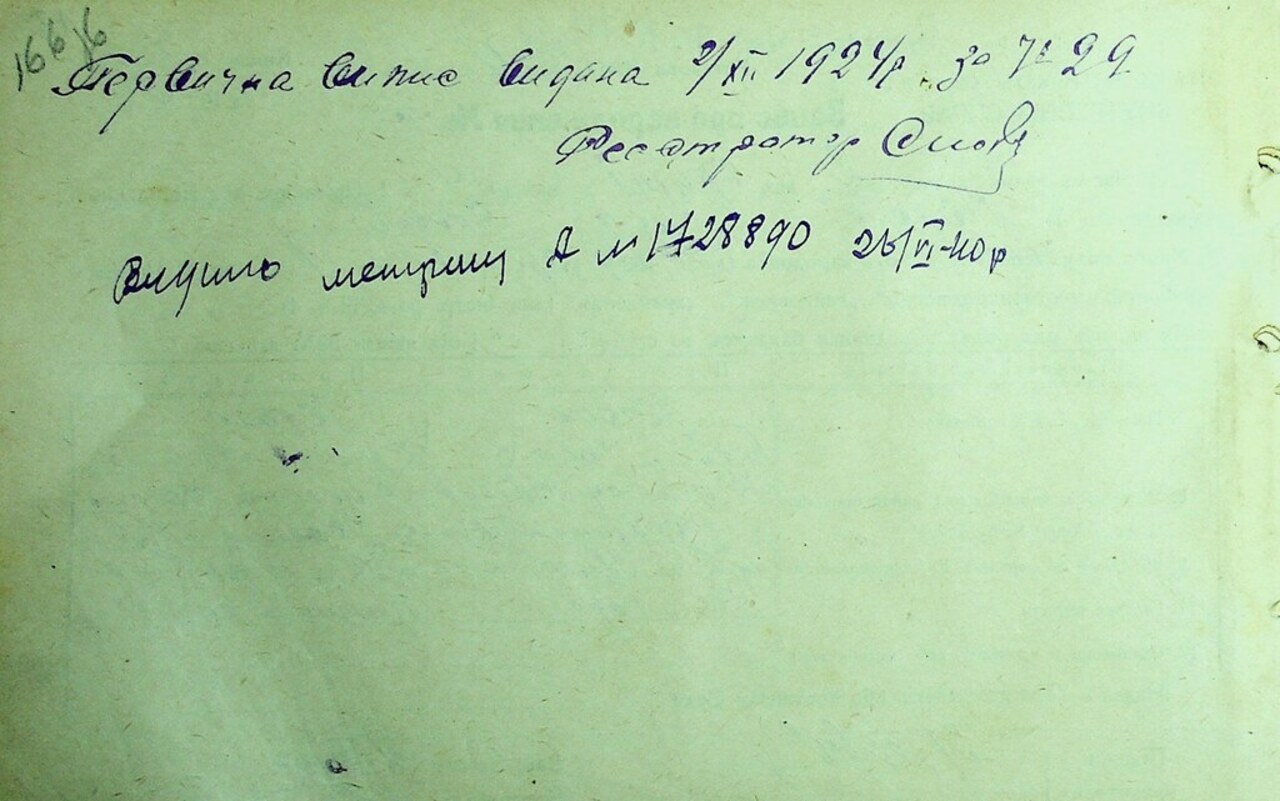 166 зв
Первична випис видана 2/XII 1924р. за № 29
Реєстратор
Видано метрику А № 1728890 26/VI-40р